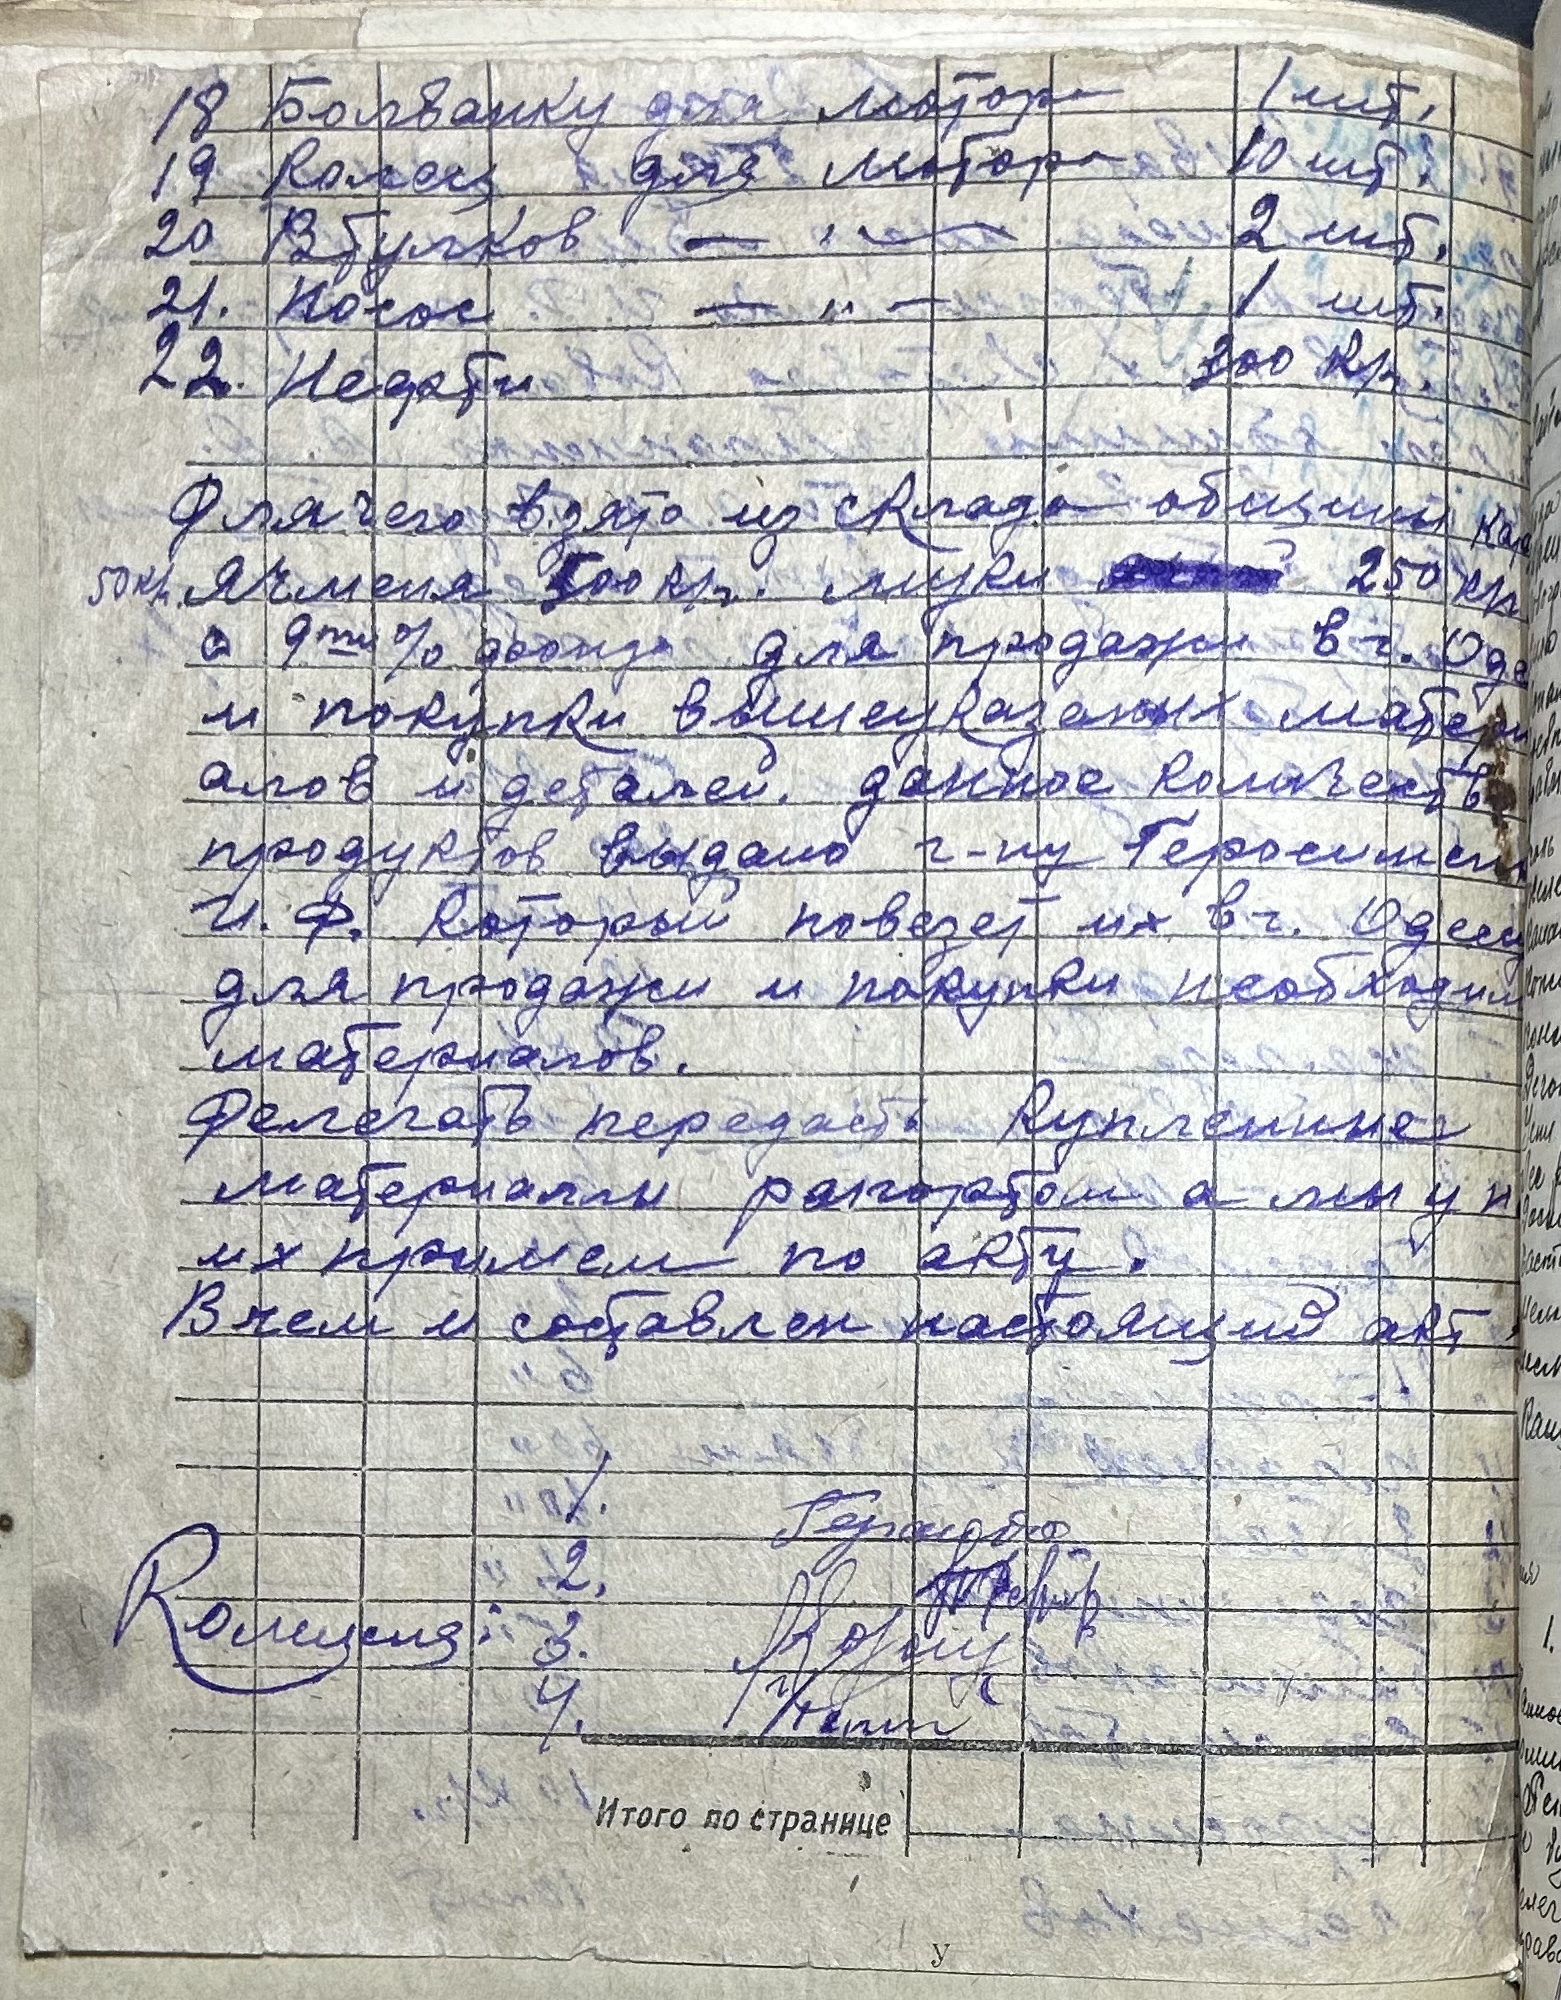 18 Болванку для мотора 1 шт.
19 Колец для мотора 10 шт.
20 Втулков — " — 2 шт.
21. Насос — " — 1 шт.
22. Недфти 300 кг.
Для чего взято из склада общины
50 кг. Ячменя 500 кг. муки 250 кг
с 9ти % фонда для продажи в г. Оде
и покупки вышеуказаных матери
алов и деталей. данное количеств
продуктов выдано г-ну Геросимен
И. Ф. Который повезет их в г. Одессу
для продажи и покупки необходим
материалов.
Делегать передасть купленные
материалы рапортом а мы у н
их примем по акту.
В чем и составлен настоящий акт
1.
2.
Комисия: 3.
4.
Итого по странице
У